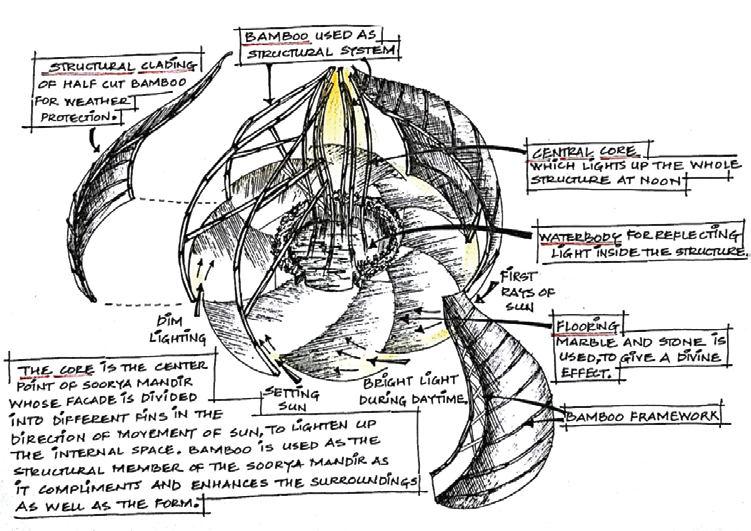 BAMBOO USED AS
STRUCTURAL SYSTEM
STRUCTURAL CLADING
OF HALF CUT BAMBOO
FOR WEATHER
PROTECTION.
CENTRAL CORE
WHICH LIGHTS UP THE WHOLE
STRUCTURE AT NOON
WATERBODY FOR REFLECTING
LIGHT INSIDE THE STRUCTURE.
FIRST
RAYS OF
SUN
DIM
LIGHTING
FLOORING
MARBLE AND STONE IS
USED, TO GIVE A DIVINE
EFFECT.
SETTING
SUN
BRIGHT LIGHT
DURING DAYTIME.
BAMBOO FRAMEWORK
THE CORE IS THE CENTER
POINT OF SOORYA MANDIR
WHOSE FACADE IS DIVIDED
INTO DIFFERENT FINS IN THE
DIRECTION OF MOVEMENT OF SUN, TO LIGHTEN UP
THE INTERNAL SPACE. BAMBOO IS USED AS THE
STRUCTURAL MEMBER OF THE SOORYA MANDIR AS
IT COMPLIMENTS AND ENHANCES THE SURROUNDINGS
AS WELL AS THE FORM.